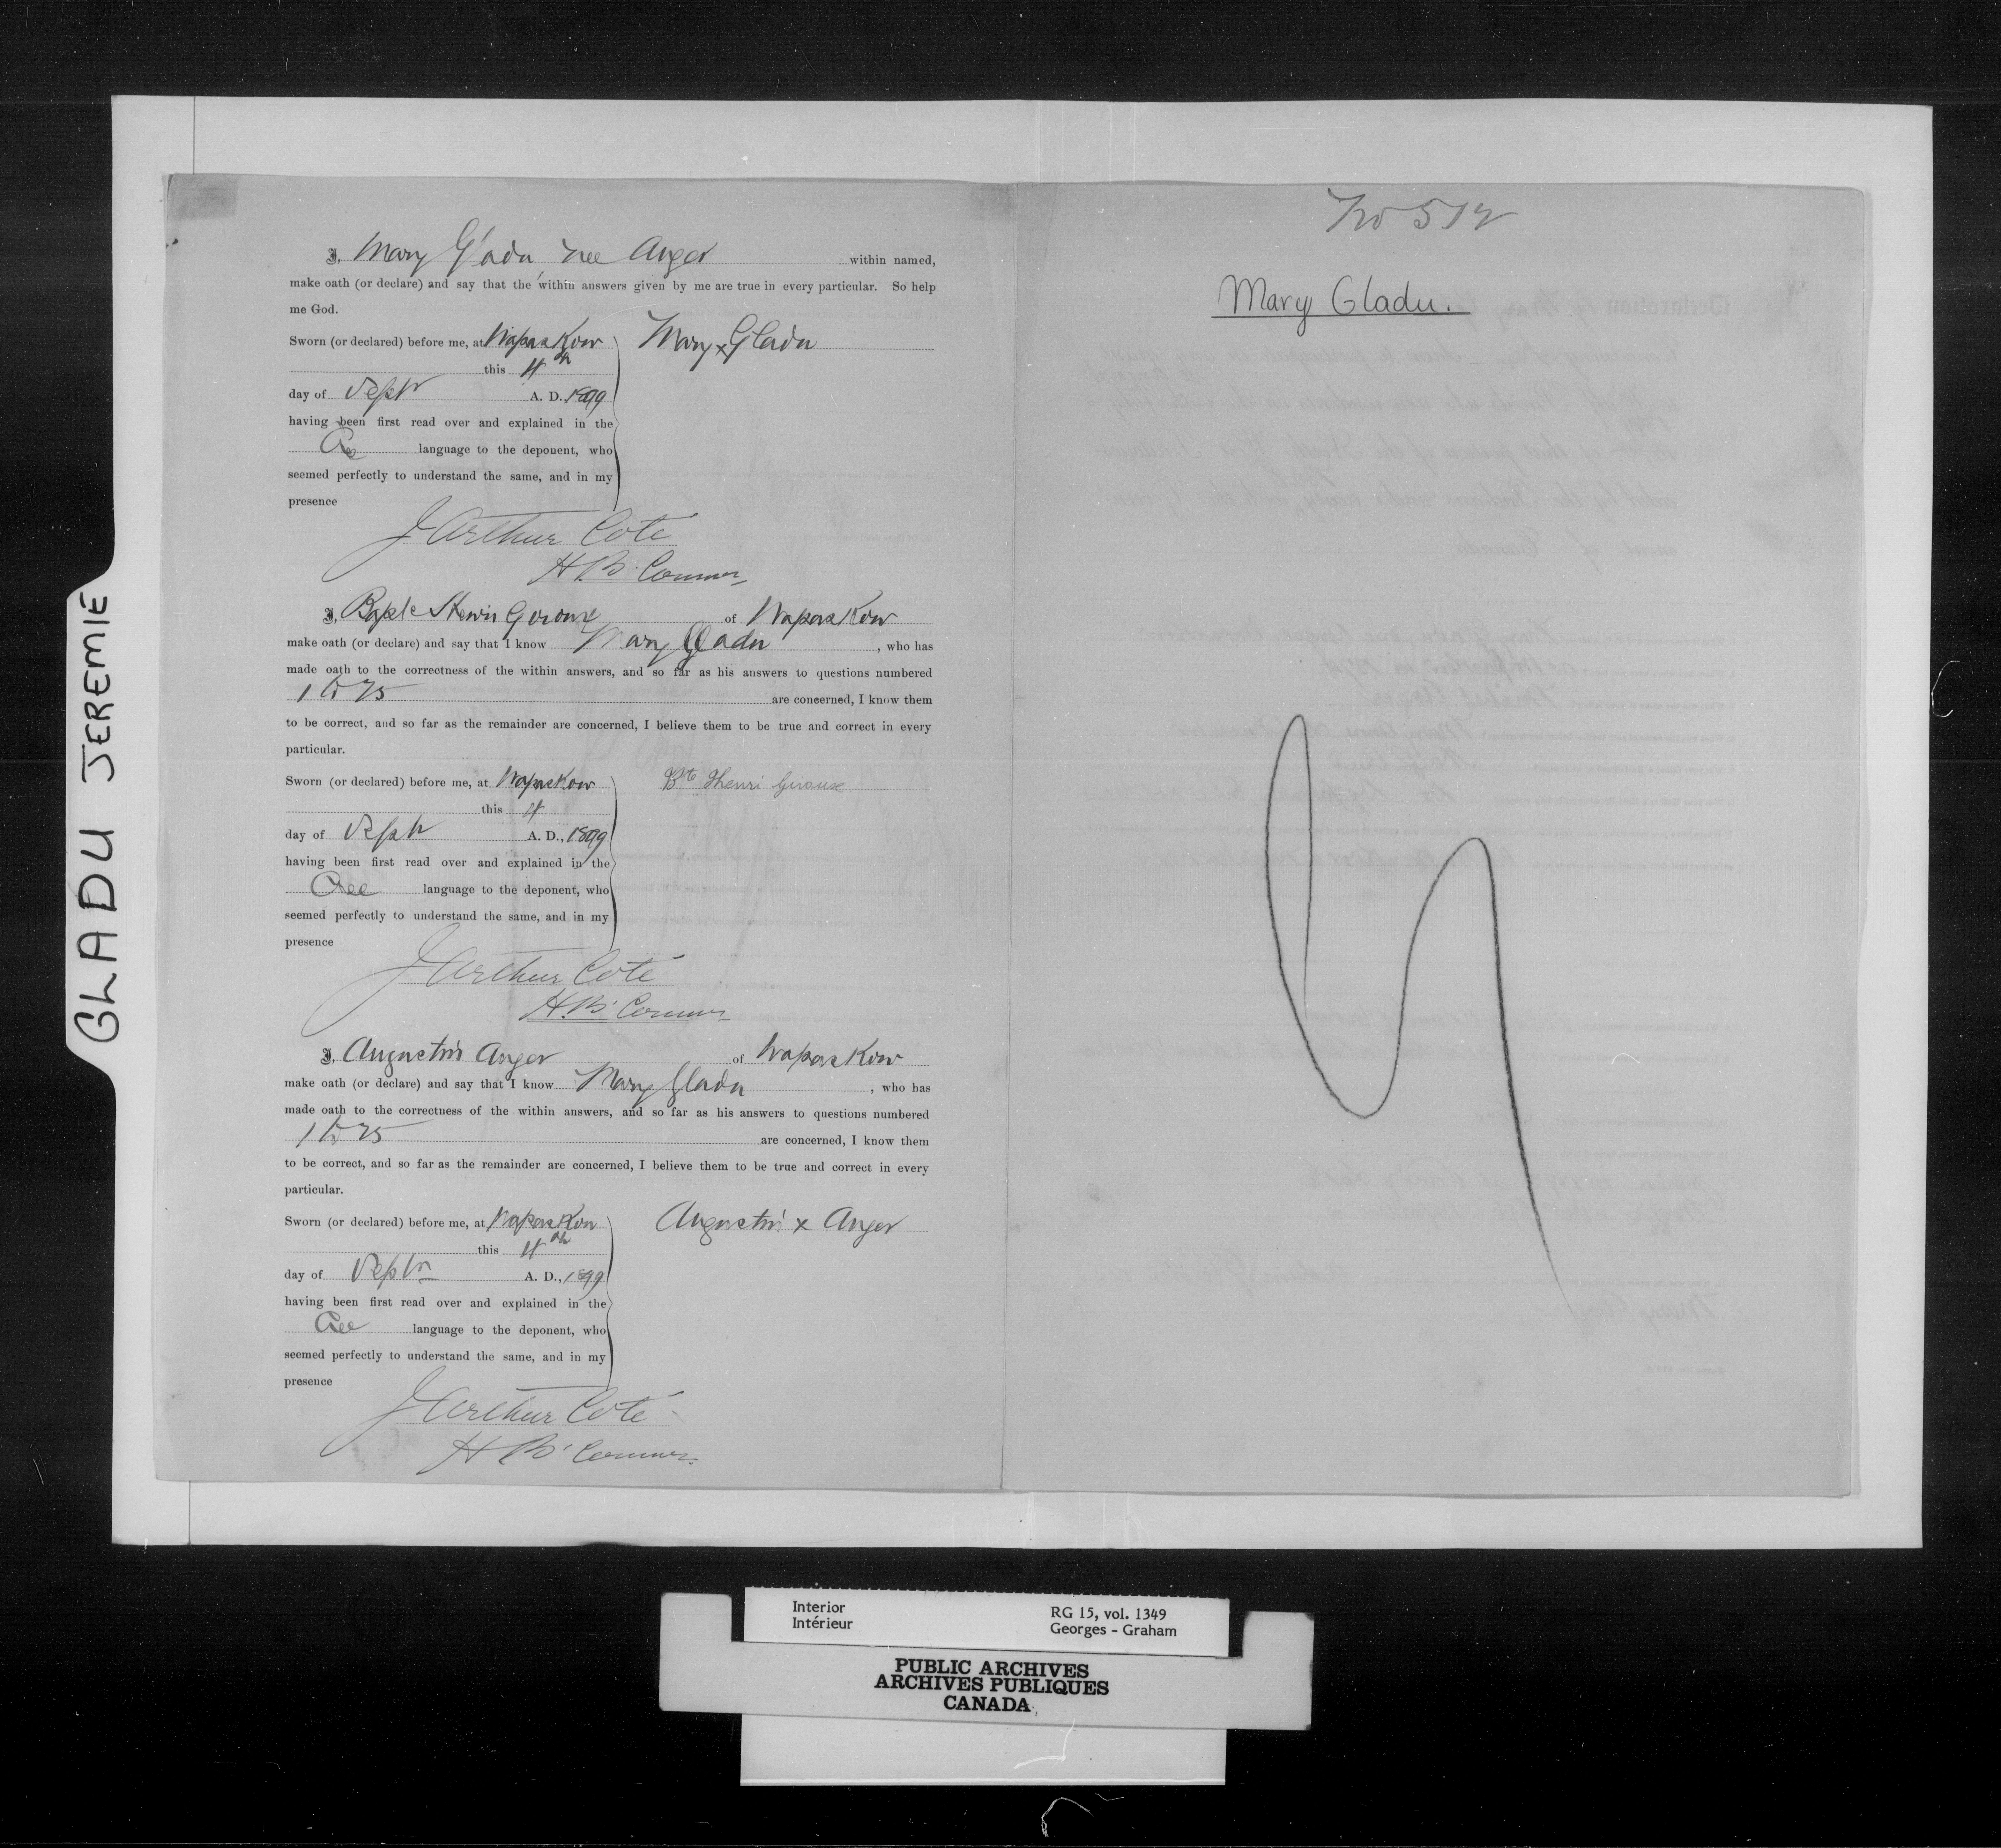 GLADU JEREMIE
I, Mary Gladu, nee Auger within named,
make oath (or declare) and say that the within answers given by me are true in every particular. So help
me God.
Sworn (or declared) before me, at Wapaskow
this 4th
day of Septr A. D. 1899
having been first read over and explained in the
Cree language to the deponent, who
seemed perfectly to understand the same, and in my
presence
Mary x Gladu
J Arthur Coté
H.B. Comr
I, Bapte Henri Giroux of Wapaskow
make oath (or declare) and say that I know Mary Gladu, who has
made oath to the correctness of the within answers, and so far as his answers to questions numbered
1 to 25 are concerned, I know them
to be correct, and so far as the remainder are concerned, I believe them to be true and correct in every
particular.
Sworn (or declared) before me, at Wapaskow
this 4
day of Septr A. D., 1899
having been first read over and explained in the
Cree language to the deponent, who
seemed perfectly to understand the same, and in my
presence
Bte Henri Giroux
J Arthur Coté
H.B. Comr
I, Augustin Auger of Wapaskow
make oath (or declare) and say that I know Mary Gladu, who has
made oath to the correctness of the within answers, and so far as his answers to questions numbered
1 to 25 are concerned, I know them
to be correct, and so far as the remainder are concerned, I believe them to be true and correct in every
particular.
Sworn (or declared) before me, at Wapaskow
this 4th
day of Septr A. D., 1899
having been first read over and explained in the
Cree language to the deponent, who
seemed perfectly to understand the same, and in my
presence
Augustin x Auger
J Arthur Coté
H B Comr
No 512
Mary Gladu.
Interior
Intérieur
RG 15, vol. 1349
Georges - Graham
PUBLIC ARCHIVES
ARCHIVES PUBLIQUES
CANADA